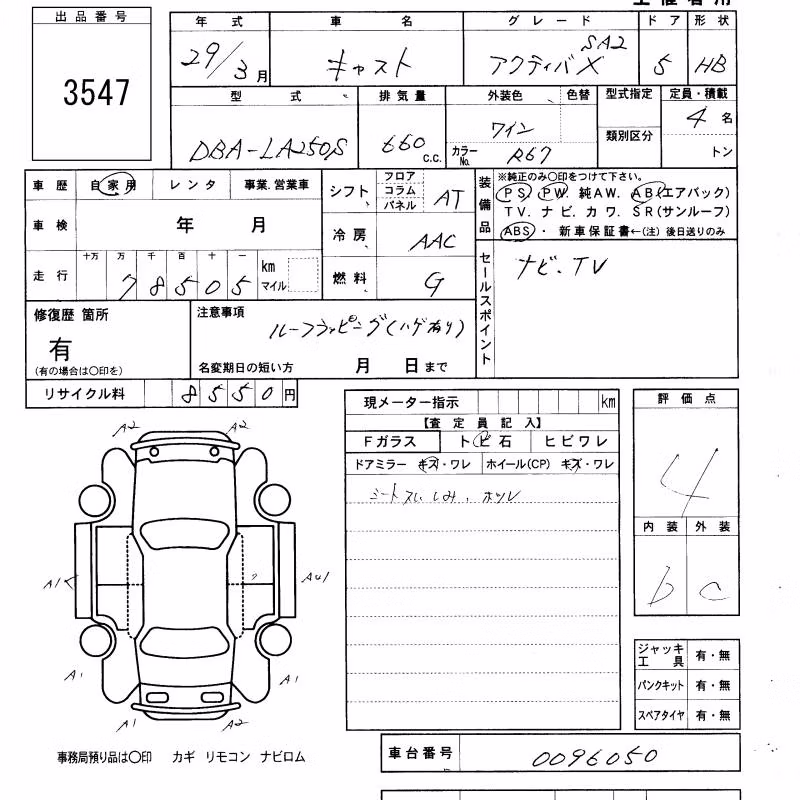 出品番号
3547
年式 車名 グレード ドア 形状
29/3月 キャスト アクティバX SA2 5 HB
型式 排気量 外装色 色替 型式指定 定員・積載
DBA-LA250S 660 c.c. ワイン 類別区分 4名
カラーNo. R67 トン
車歴 自家用 レンタ 事業.営業車
シフト フロア コラム パネル AT
装備品
※純正のみ○印をつけて下さい。
PS. PW. 純AW. AB(エアバック)
TV. ナビ. カワ. SR(サンルーフ)
ABS・ 新車保証書←(注) 後日送りのみ
車検 年 月
冷房 AAC
走行 十万 万 千 百 十 一
78505 km マイル
燃料 G
セールスポイント
ナビ、TV
修復歴 箇所
有
(有の場合は○印を)
注意事項
ルーフラッピング(ハゲ有り)
名変期日の短い方 月 日まで
リサイクル料 8550円
現メーター指示 km
【査定員記入】
Fガラス トビ石 ヒビワレ
ドアミラー キズ・ワレ ホイール(CP) キズ・ワレ
シートスレ、しみ、ホツレ
評価点
4
内装 外装
b c
A2 A2
A1 A41
A1 A1
A1 A2
ジャッキ工具 有・無
パンクキット 有・無
スペアタイヤ 有・無
事務局預り品は○印 カギ リモコン ナビロム
車台番号 0096050